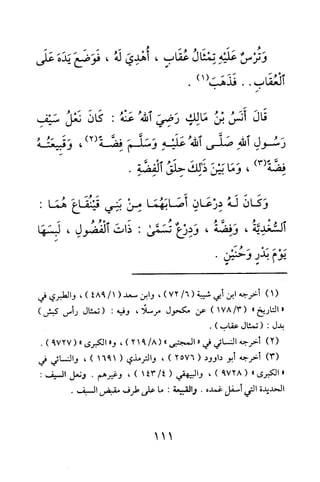 وَتُرْسٌ عَلَيْهِ تِمْثَالُ عُقَابٍ ، أُهْدِيَ لَهُ ، فَوَضَعَ يَدَهُ عَلَى
ٱلْعُقَابِ . . فَذَهَبَ(١) .
قَالَ أَنَسُ بْنُ مَالِكٍ رَضِيَ ٱللهُ عَنْهُ : كَانَ نَعْلُ سَيْفِ
رَسُولِ ٱللهِ صَلَّى ٱللهُ عَلَيْهِ وَسَلَّمَ فِضَّةً(٢) ، وَقَبِيعَتُهُ
فِضَّةً(٣) ، وَمَا بَيْنَ ذَلِكَ حِلَقُ ٱلْفِضَّةِ .
وَكَانَ لَهُ دِرْعَانِ أَصَابَهُمَا مِنْ بَنِي قَيْنُقَاعَ هُمَا :
ٱلسُّغْدِيَّةُ ، وَفِضَّةُ ، وَدِرْعٌ تُسَمَّىٰ : ذَاتَ ٱلْفُضُولِ ، لَبِسَهَا
يَوْمَ بَدْرٍ وَحُنَيْنٍ .
(١) أخرجه ابن أبي شيبة ( ٦/ ٧٢ ) ، وابن سعد ( ١/ ٤٨٩ ) ، والطبري في
« التاريخ » ( ٣/ ١٧٨ ) عن مكحول مرسلاً ، وفيه : ( تمثال رأس كبش )
بدل : ( تمثال عقاب ) .
(٢) أخرجه النسائي في « المجتبى » ( ٨/ ٢١٩ ) ، و« الكبرى » ( ٩٧٢٧ ) .
(٣) أخرجه أبو داوود ( ٢٥٧٦ ) ، والترمذي ( ١٦٩١ ) ، والنسائي في
« الكبرى » ( ٩٧٢٨ ) ، والبيهقي ( ٤/ ١٤٣ ) ، وغيرهم . ونعل السيف :
الحديدة التي أسفل غمده . والقبيعة : ما على طرف مقبض السيف .
١١١